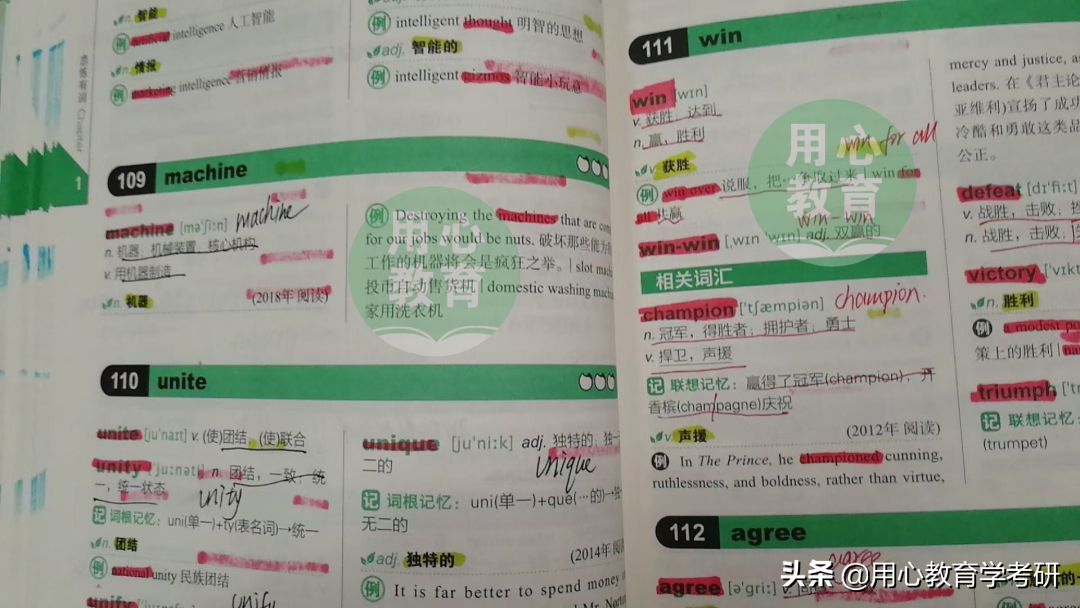 恋练有词 Chapter
1
n. 智能
例 artificial intelligence 人工智能
n. 情报
例 marketing intelligence 营销情报
例 intelligent thought 明智的思想
adj. 智能的
例 intelligent gizmos 智能小玩意
109 machine
machine [məˈʃiːn] machine
n. 机器；机械装置；核心机构
v. 用机器制造
n. 机器
(2018年 阅读)
例 Destroying the machines that are
for our jobs would be nuts. 破坏那些能为
工作的机器将会是疯狂之举。| slot
投币自动售货机 | domestic washing
家用洗衣机
110 unite
unite [juˈnaɪt] v. (使)团结，(使)联合
unity [ˈjuːnəti] n. 团结，一致；统
一，统一状态
unity
记 词根记忆：uni(单一)+ty(表名词)→统一
n. 团结
例 national unity 民族团结
unify
unify
unique [juˈniːk] adj. 独特的；独一
二的
unique
记 词根记忆：uni(单一)+que(…的)→独一
无二的
(2014年 阅读
adj. 独特的
例 It is far better to spend money
111 win
win [wɪn]
v. 获胜；达到
n. 赢，胜利
win for all
v. 获胜
例 win over 说服，把…争取过来 | win for
all 共赢
win-win
win-win [ˌwɪn ˈwɪn] adj. 双赢的
相关词汇
champion [ˈtʃæmpiən] champion.
n. 冠军，得胜者；拥护者；勇士
v. 捍卫，声援
记 联想记忆：赢得了冠军(champion)，开
香槟(champagne)庆祝
v. 声援
(2012年 阅读)
例 In The Prince, he championed cunning,
ruthlessness, and boldness, rather than virtue,
112 agree
agree
agree [əˈɡriː]
mercy and justice, as
leaders. 在《君主论
亚维利)宣扬了成功
冷酷和勇敢这类品
公正。
defeat [dɪˈfiːt]
v. 战胜，击败；挫
n. 战胜，击败；
victory [ˈvɪkt
n. 胜利
例 a modest
策上的胜利
triumph
记 联想记忆：
(trumpet)
用心
教育
用心
教育
头条 @用心教育学考研